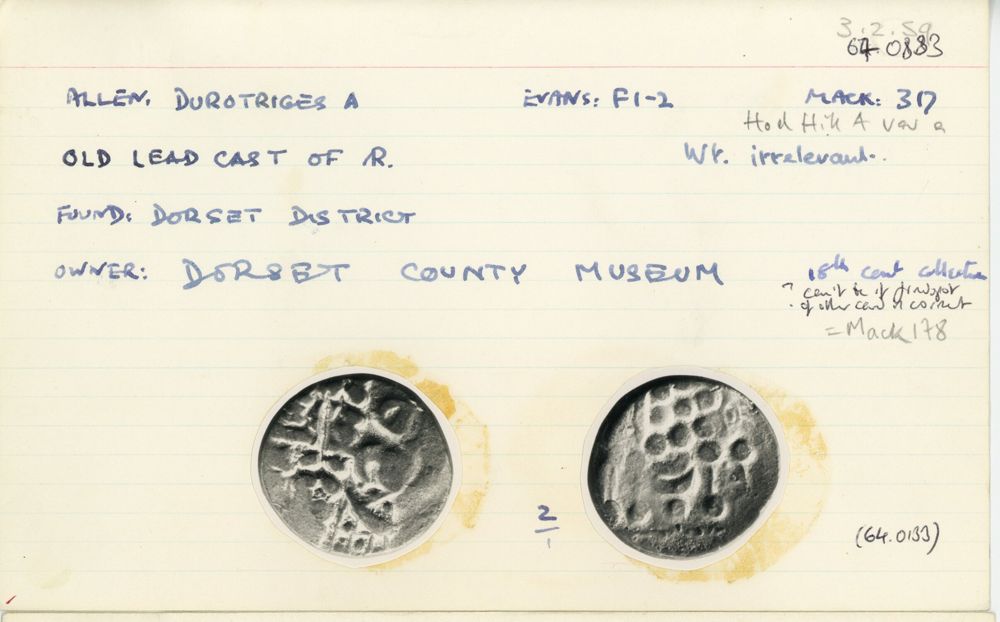 3.2.59
64.0883
ALLEN: DUROTRIGES A EVANS: F1-2 MACK: 317
Hod Hill A var a
OLD LEAD CAST OF Æ. Wt. irrelevant.
FOUND: DORSET DISTRICT
OWNER: DORSET COUNTY MUSEUM 18th cent collection
? can't be if findspot
of other card is correct
= Mack 178
2/1
(64.0133)